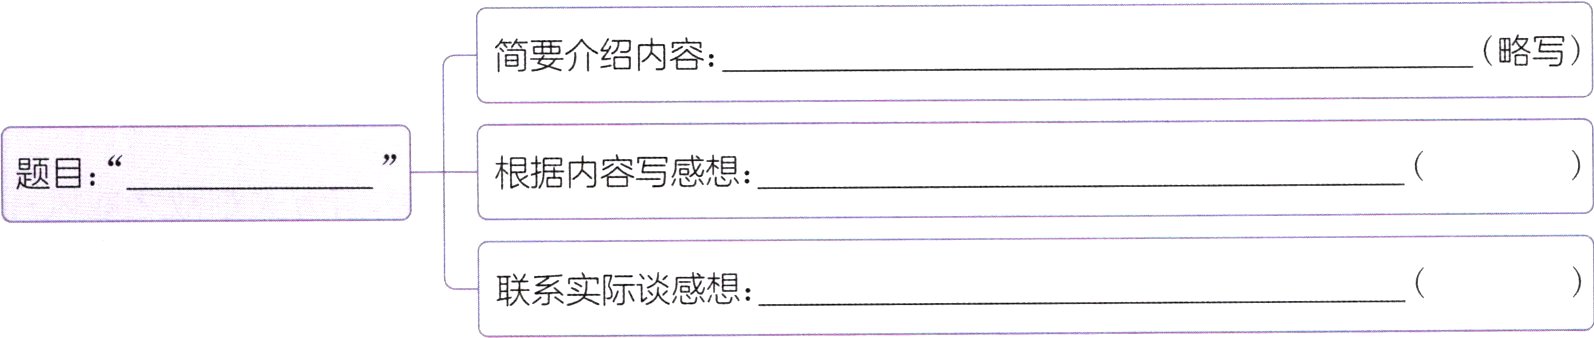 简要介绍内容：____________（略写）
题目：“____________”
根据内容写感想：____________（ ）
联系实际谈感想：____________（ ）